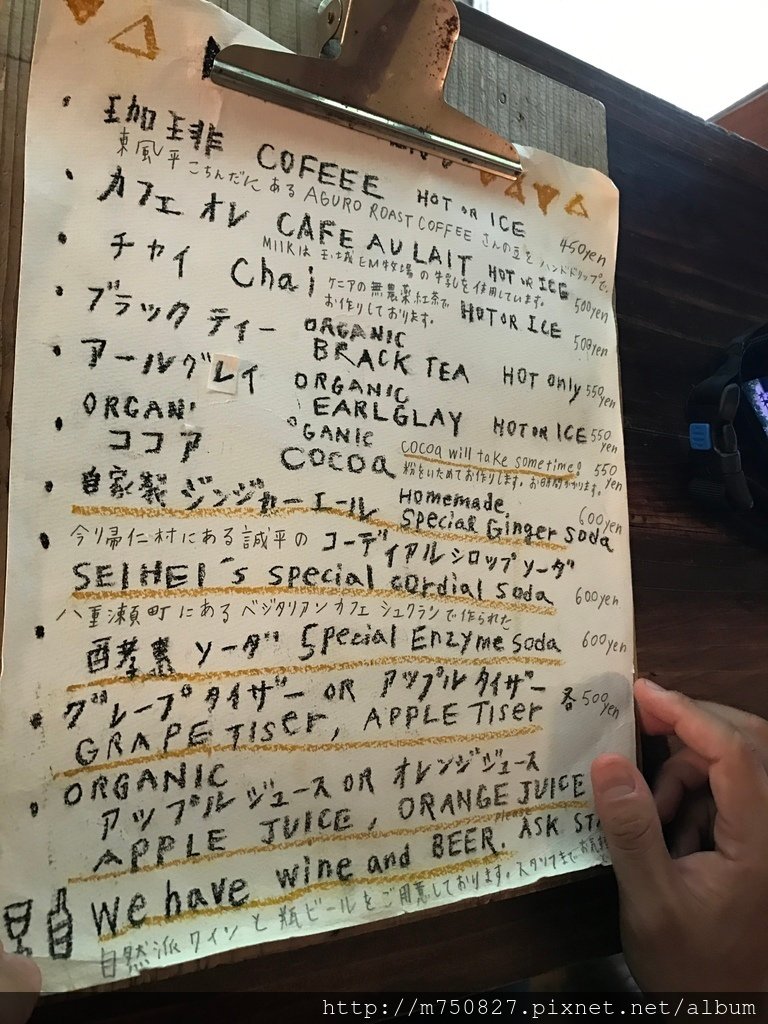 珈琲 COFEEE HOT OR ICE 450yen
東風平こちんだにある AGURO ROAST COFFEE さんの豆をハンドドリップで。
カフェ オレ CAFE AU LAIT HOT OR ICE 500yen
MilKは 玉城EM牧場の牛乳を使用しています。
チャイ Chai HOT OR ICE 500yen
ケニアの無農薬紅茶で
お作りしております。
ブラック ティー ORGANIC
BRACK TEA HOT only 550yen
アールグレイ ORGANIC
EARLGLAY HOT OR ICE 550yen
ORGANI GANIC
ココア COCOA cocoa will take sometime! 550yen
お作りします。お時間かかります。
自家製 ジンジャーエール Homemade
Special Ginger Soda 600yen
今帰仁村にある 誠平の コーディアルシロップソーダ
SEIHEI's special cordial soda 600yen
八重瀬町にある ベジタリアンカフェ シュクランで作られた
酵素 ソーダ Special Enzyme soda 600yen
グレープタイザー OR アップルタイザー 各500yen
GRAPE Tiser, APPLE Tiser
ORGANIC
アップルジュース OR オレンジジュース
APPLE JUICE, ORANGE JUICE
We have wine and BEER. Please ASK STA
自然派ワインと瓶ビールをご用意しております。スタッフまでお
http://m750827.pixnet.net/album